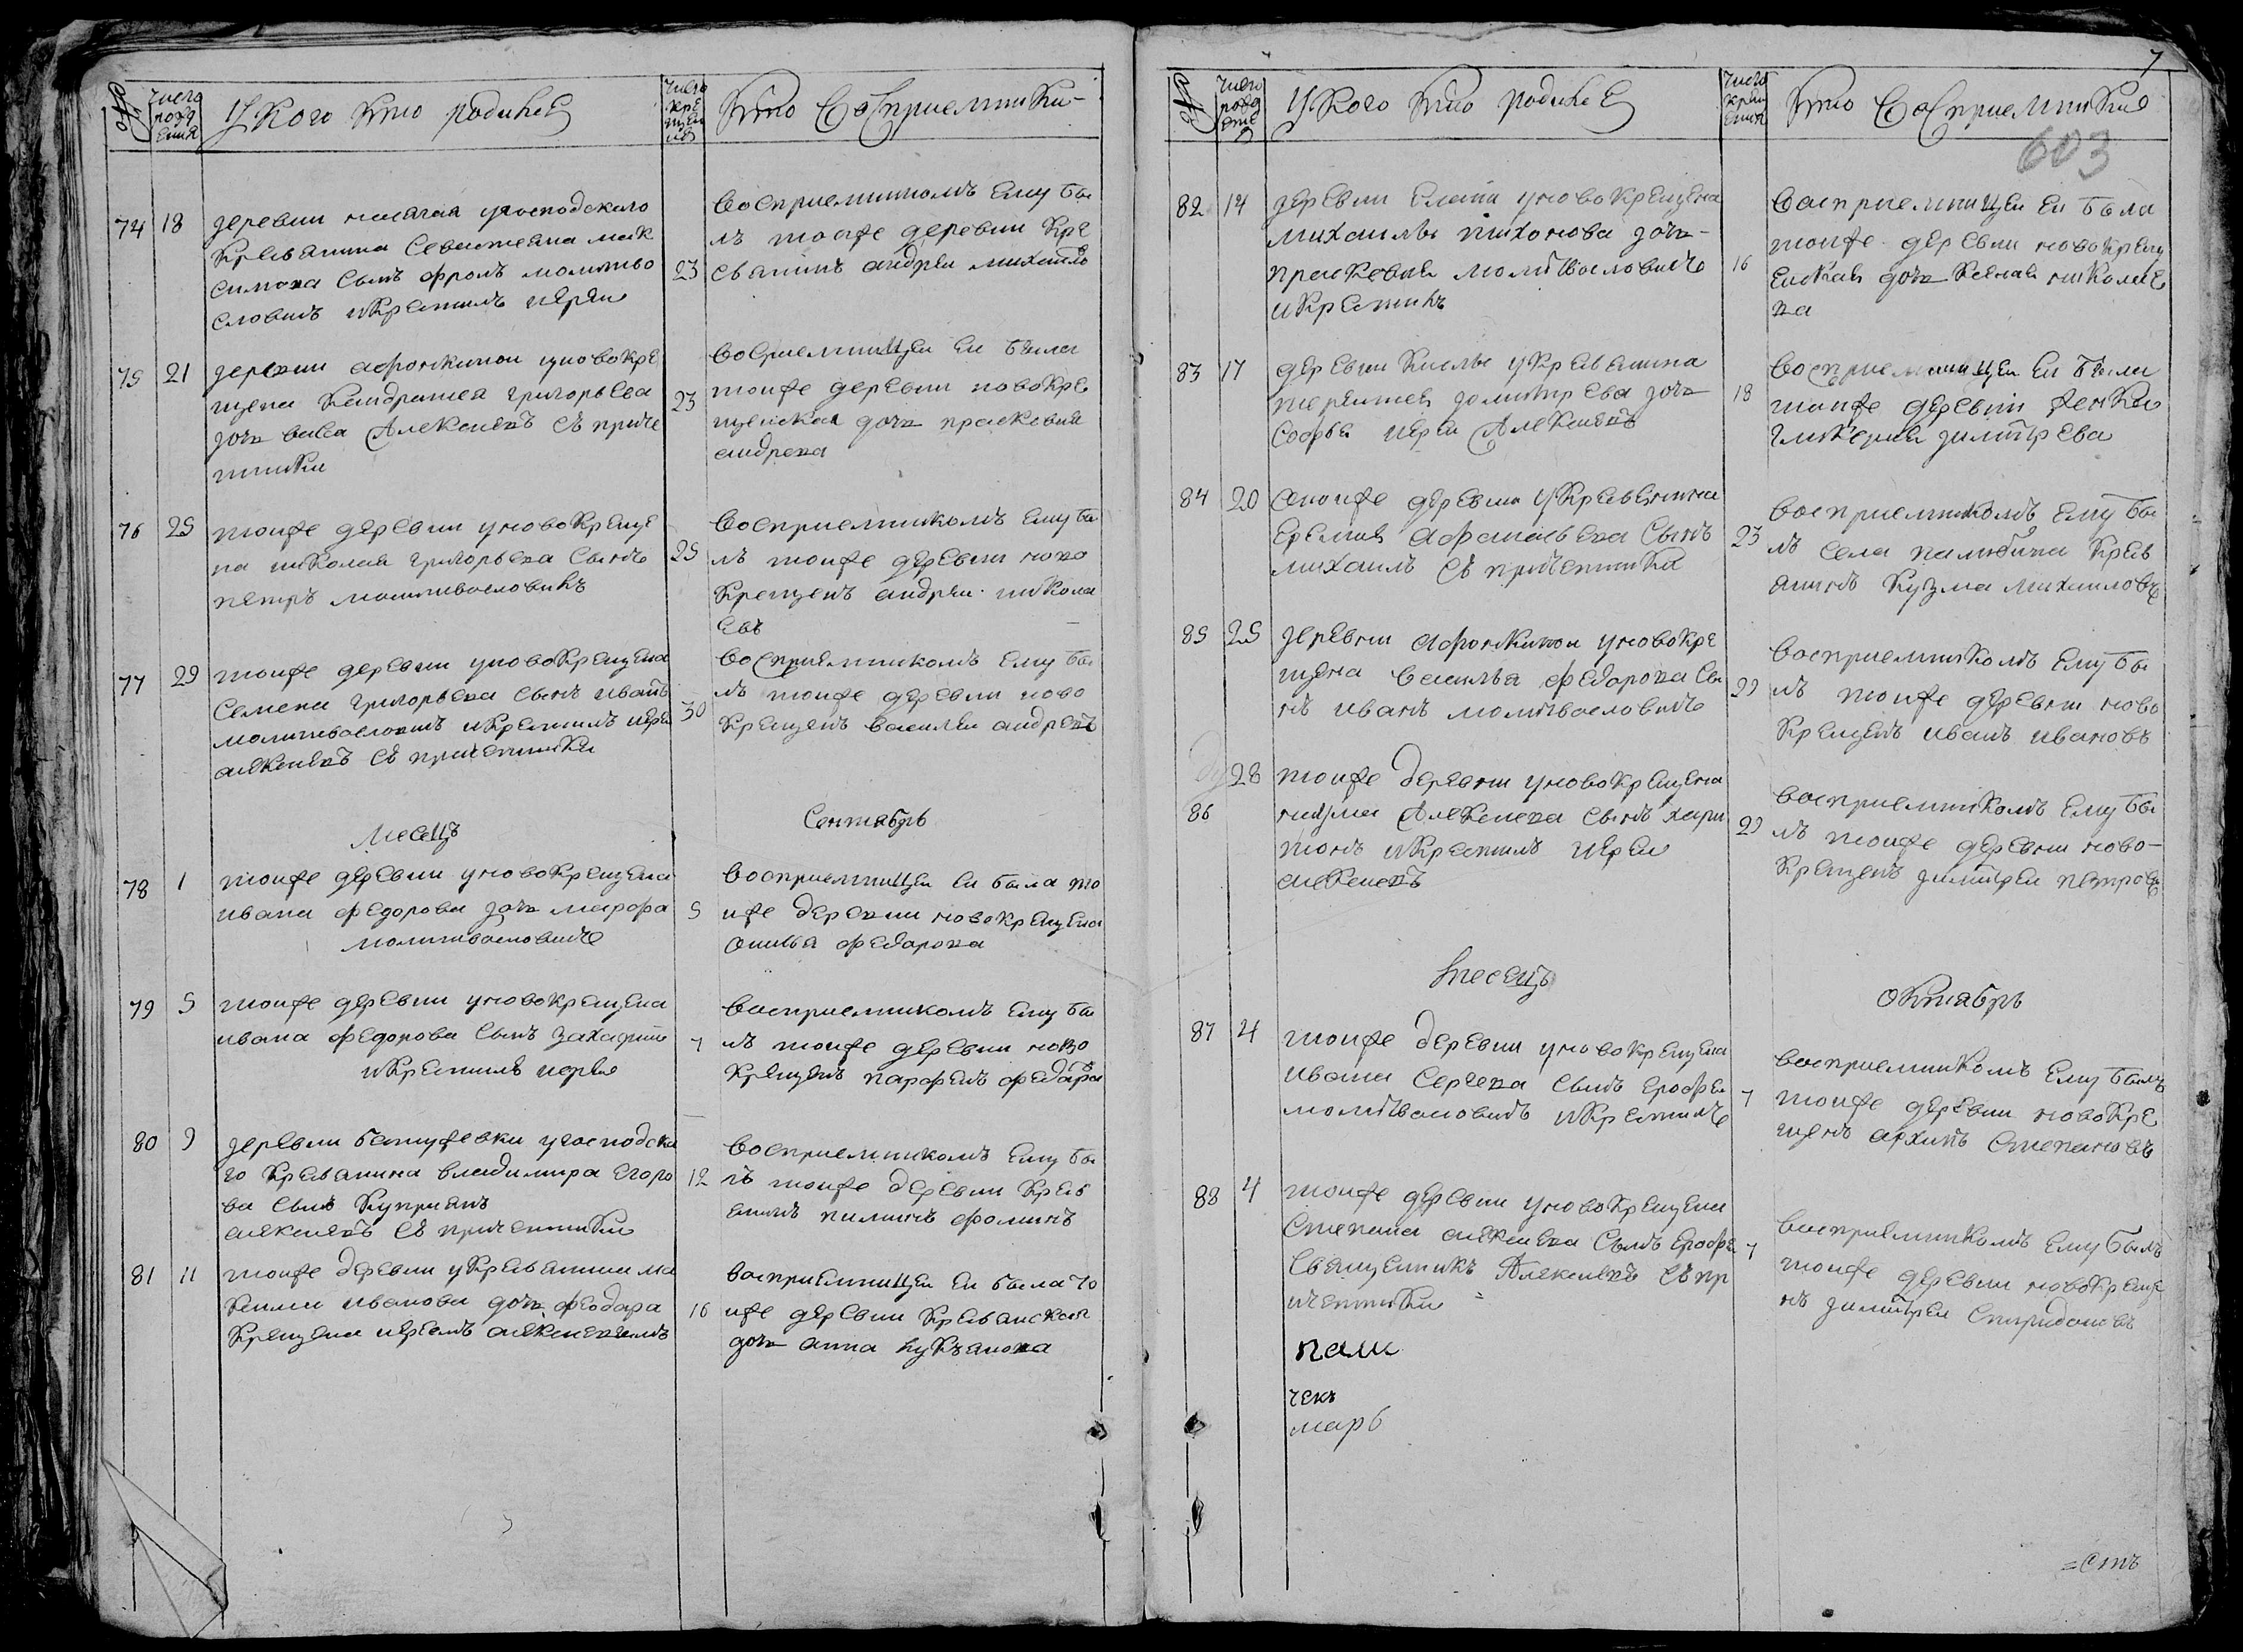 числа рожд ения
У Кого Кто родился
числа кре щен ия
Кто Восприемники
74 18 деревни у господского
крестьянина Севастьяна мак
симова сынъ фролъ молитво
словилъ и крестилъ иереи
23
восприемникомъ ему бы
лъ тоиже деревни кре
стьянинъ андреи михаиловъ
75 21 деревни афонькинои у новокре
щена Кандратея григорьева
дочь васса Алексеевъ съ приче
тники
23
восприемницеи еи была
тоиже деревни новокре
щенская дочь прасковия
андреева
76 25 тоиже деревни у новокреще
на николая григорьева сынъ
петръ молитвословилъ
25
восприемникомъ ему бы
лъ тоиже деревни ново
крещенъ андреи никола
евъ
77 29 тоиже деревни у новокрещена
Семена григорьева сынъ иванъ
молитвословилъ и крестилъ иереи
алексеевъ съ причетники
30
восприемникомъ ему бы
лъ тоиже деревни ново
крещенъ василеи андреевъ
Месецъ
Сентябрь
78 1 тоиже деревни у новокрещена
ивана федорова дочь марфа
молитвословилъ
5
восприемницеи еи была то
иже деревни новокрещена
федорова
79 5 тоиже деревни у новокрещена
ивана федорова сынъ захарии
и крестилъ иереи
7
восприемникомъ ему бы
лъ тоиже деревни ново
крещенъ парфенъ федоровъ
80 9 деревни у господска
го крестьянина владимира егоро
ва сынъ куприянъ
алексеевъ съ причетники
12
восприемникомъ ему бы
лъ тоиже деревни крест
янинъ пиминъ фоминъ
81 11 тоиже деревни у крестьянина ма
ксима иванова дочь феодора
крещена иереемъ алексеевымъ
16
восприемницеи еи была то
иже деревни крестьянская
дочь анна лукьянова
7
числа рожд ение
У Кого Кто родился
числа крещ ения
Кто Восприемники
603
82 14 деревни у новокрещена
михаилы тихонова дочь
праскевия молитвословилъ
и крестилъ
16
восприемницеи еи была
тоиже деревни новокрещ
енская дочь николае
ва
83 17 деревни у крестьянина
терентея димитрева дочь
Софья иереи Алексеевъ
18
восприемницеи еи была
тоиже деревни девка
гликерия димитрева
84 20 тоиже деревни у крестьянина
еремия афанасьева сынъ
михаилъ съ причетники
23
восприемникомъ ему бы
лъ села крест
янинъ кузма михаиловъ
85 25 деревни афонькинои у новокре
щена василья федорова сы
нъ иванъ молитвословилъ
29
восприемникомъ ему бы
лъ тоиже деревни ново
крещенъ иванъ ивановъ
86 28 тоиже деревни у новокрещена
наума Алексеева сынъ хари
тонъ и крестилъ иереи
алексеевъ
29
восприемникомъ ему бы
лъ тоиже деревни ново
крещенъ димитреи петровъ
месецъ
октябрь
87 4 тоиже деревни у новокрещена
ивана Сергеева сынъ ерофеи
молитвословилъ и крестилъ
7
восприемникомъ ему былъ
тоиже деревни новокре
щенъ архипъ степановъ
88 4 тоиже деревни у новокрещена
Степана алексеева сынъ ерофе
священникъ Алексеевъ съ пр
ичетники
7
восприемникомъ ему былъ
тоиже деревни новокреще
нъ димитреи спиридоновъ
марь
=стъ